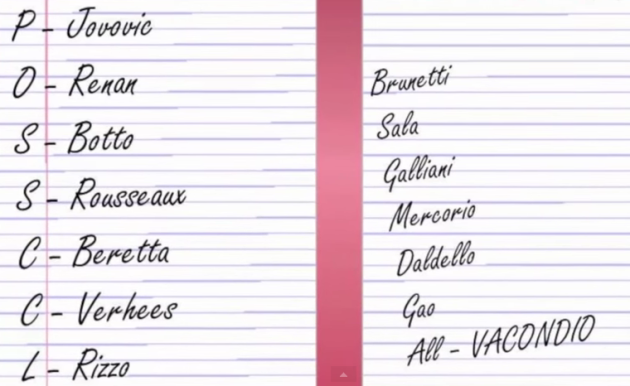 P - Jovovic
O - Renan
S - Botto
S - Rousseaux
C - Beretta
C - Verhees
L - Rizzo
Brunetti
Sala
Galliani
Mercorio
Daldello
Gao
All - VACONDIO